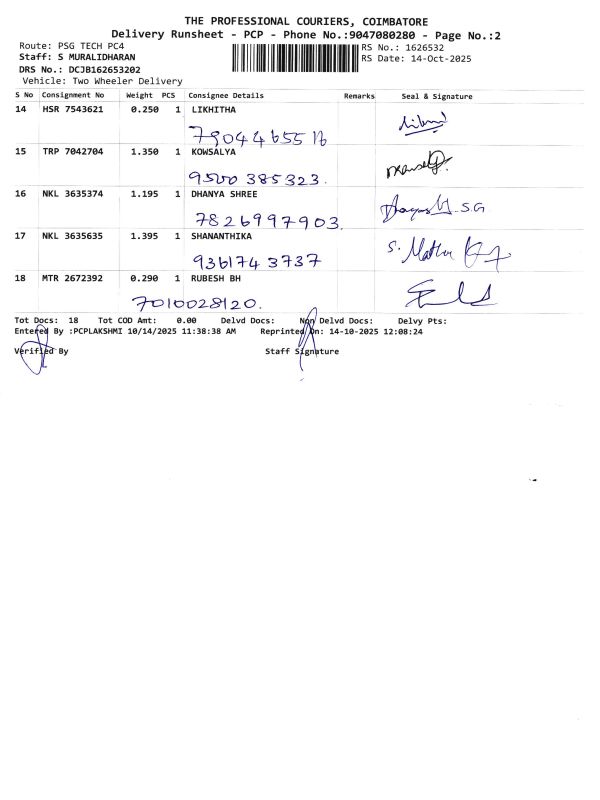 THE PROFESSIONAL COURIERS, COIMBATORE
Delivery Runsheet - PCP - Phone No.:9047080280 - Page No.:2
Route: PSG TECH PC4 RS No.: 1626532
Staff: S MURALIDHARAN RS Date: 14-Oct-2025
DRS No.: DCJB162653202
Vehicle: Two Wheeler Delivery
S No Consignment No Weight PCS Consignee Details Remarks Seal & Signature
14 HSR 7543621 0.250 1 LIKHITHA
7904465516
15 TRP 7042704 1.350 1 KOWSALYA
9500 385323.
16 NKL 3635374 1.195 1 DHANYA SHREE
7826997903.
17 NKL 3635635 1.395 1 SHANANTHIKA
9361743737
18 MTR 2672392 0.290 1 RUBESH BH
7010028120.
Tot Docs: 18 Tot COD Amt: 0.00 Delvd Docs: Non Delvd Docs: Delvy Pts:
Entered By :PCPLAKSHMI 10/14/2025 11:38:38 AM Reprinted On: 14-10-2025 12:08:24
Verified By Staff Signature